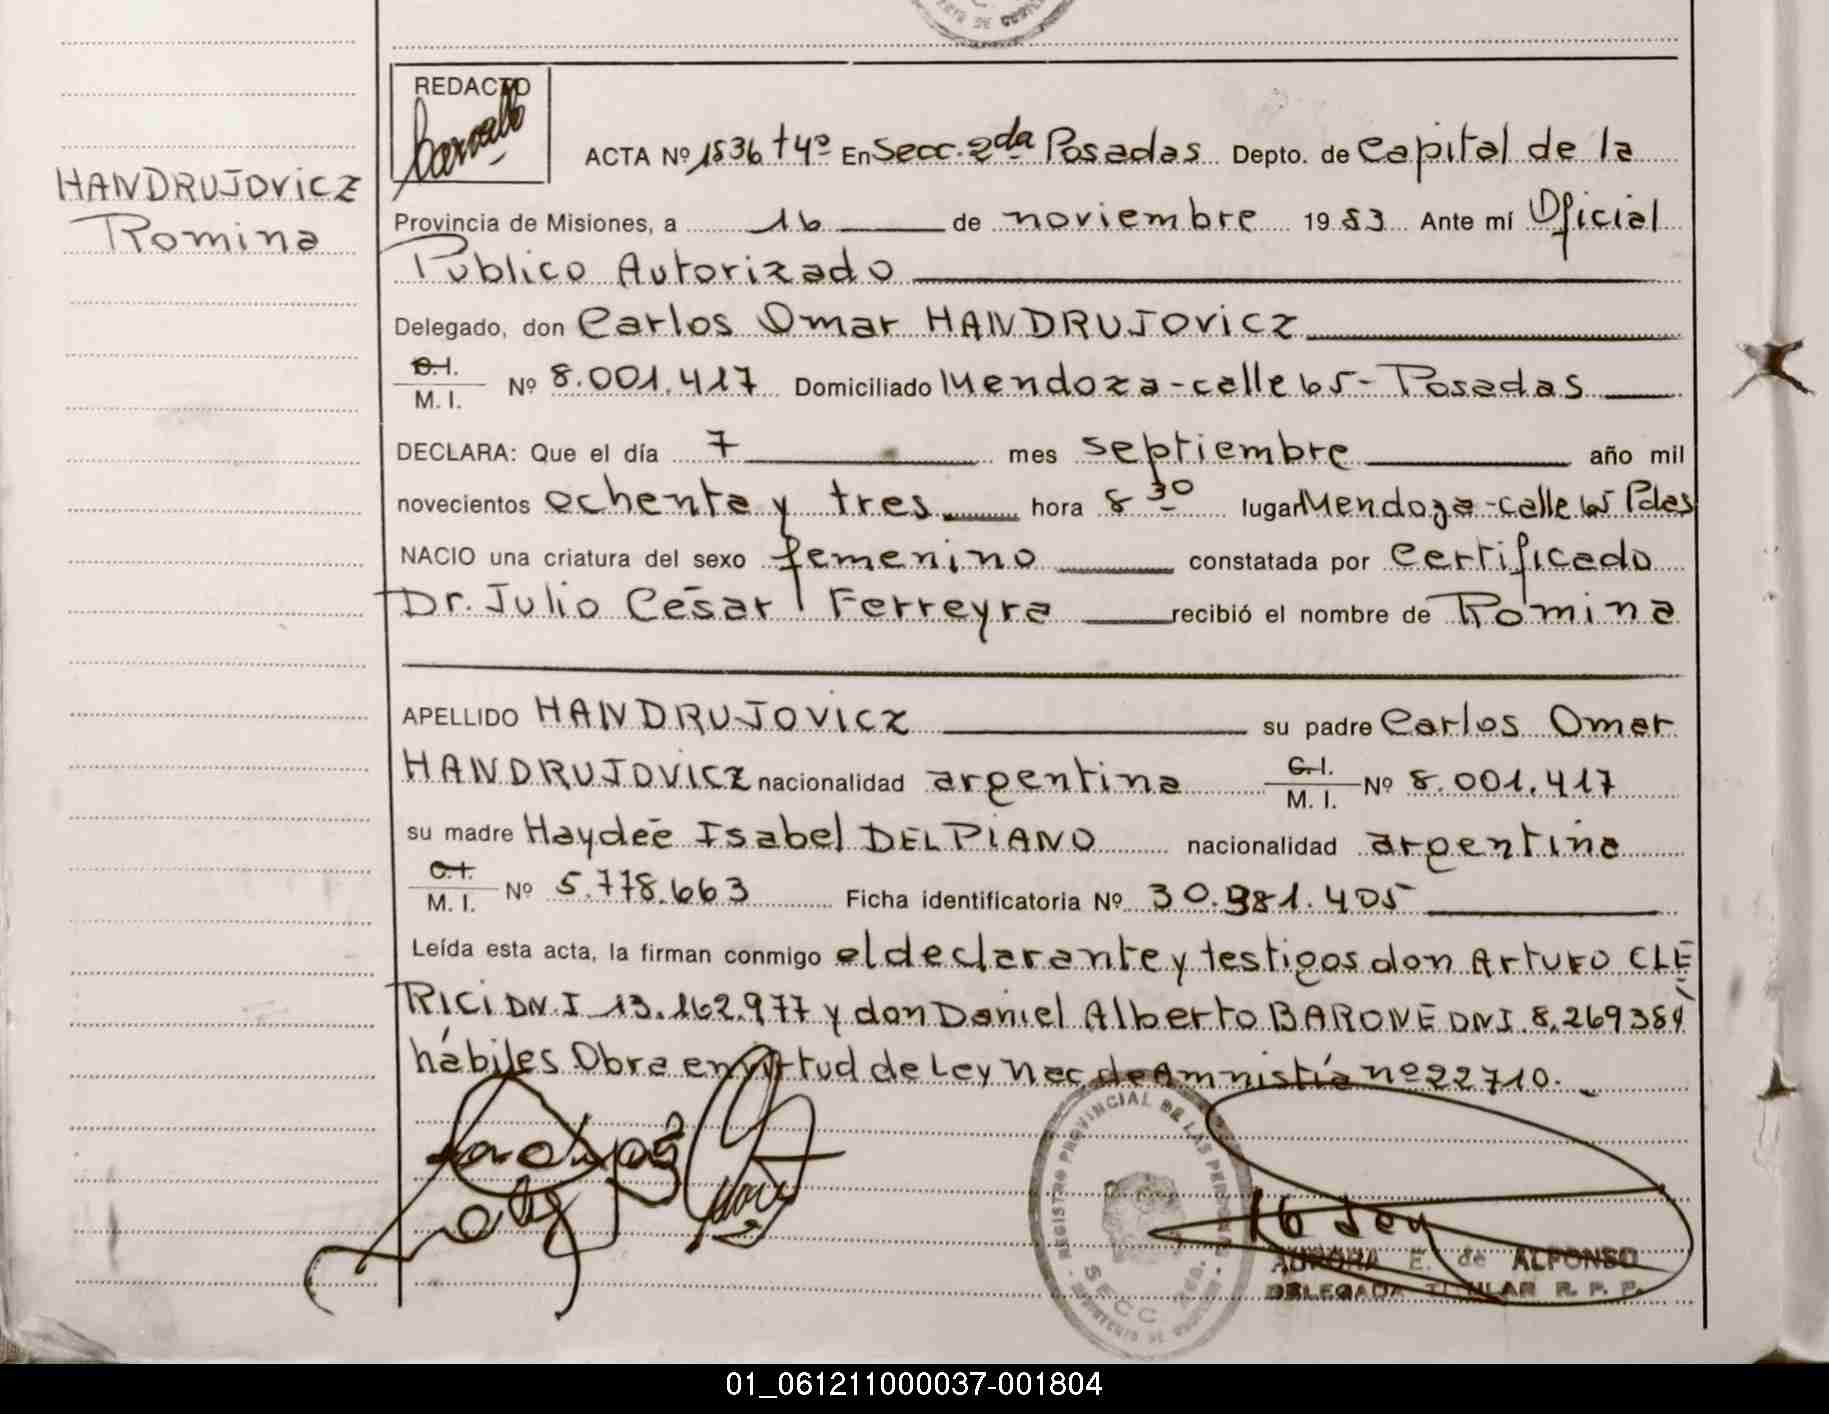 HANDRUJOVICZ
Romina
REDACTO
ACTA Nº 1836 t4º En Secc. 2da Posadas Depto. de Capital de la
Provincia de Misiones, a 16 de noviembre 1983 Ante mí Oficial
Publico Autorizado
Delegado, don Carlos Omar HANDRUJOVICZ
C.I.
M. I. Nº 8.001.417 Domiciliado Mendoza-calle 65-Posadas
DECLARA: Que el día 7 mes septiembre año mil
novecientos ochenta y tres hora 8 30 lugar Mendoza-calle 65 Pdas
NACIO una criatura del sexo femenino constatada por certificado
Dr. Julio César Ferreyra recibió el nombre de Romina
APELLIDO HANDRUJOVICZ su padre Carlos Omar
HANDRUJOVICZ nacionalidad argentina C.I. M. I. Nº 8.001.417
su madre Haydée Isabel DELPIANO nacionalidad argentina
C.I.
M. I. Nº 5.778.663 Ficha identificatoria Nº 30.981.405
Leída esta acta, la firman conmigo el declarante y testigos don Arturo CLE
RICI DN.I 13.162.977 y don Daniel Alberto BARONE DNI. 8.269384
hábiles Obra en virtud de Ley Nac. de Amnistía nº 22710.
REGISTRO PROVINCIAL DE LAS PERSONAS
SECC 2da.
AURORA E. de ALFONSO
DELEGADA TITULAR R. P. P.
01_061211000037-001804